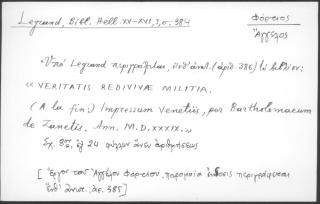 Legrand, Bibl. Hell. XV-XVI, 3, σ. 384
Φόρτιος
Ἄγγελος
Ὑπό Legrand περιγράφεται, (ἀριθ. 386) τό βιβλίον:
« VERITATIS REDIVIVAE MILITIA.
(A la fin:) Impressum Venetiis, per Bartholomaeum
de Zanetis. Ann. M.D.XXXIX.»
Σχ. 8ον, ἐξ 24 φύλλων ἄνευ ἀριθμήσεως
[ Ἔργον τοῦ Ἀγγέλου Φορτίου, παρομοία ἔκδοσις περιγράφεται
ἀρ. 385 ]